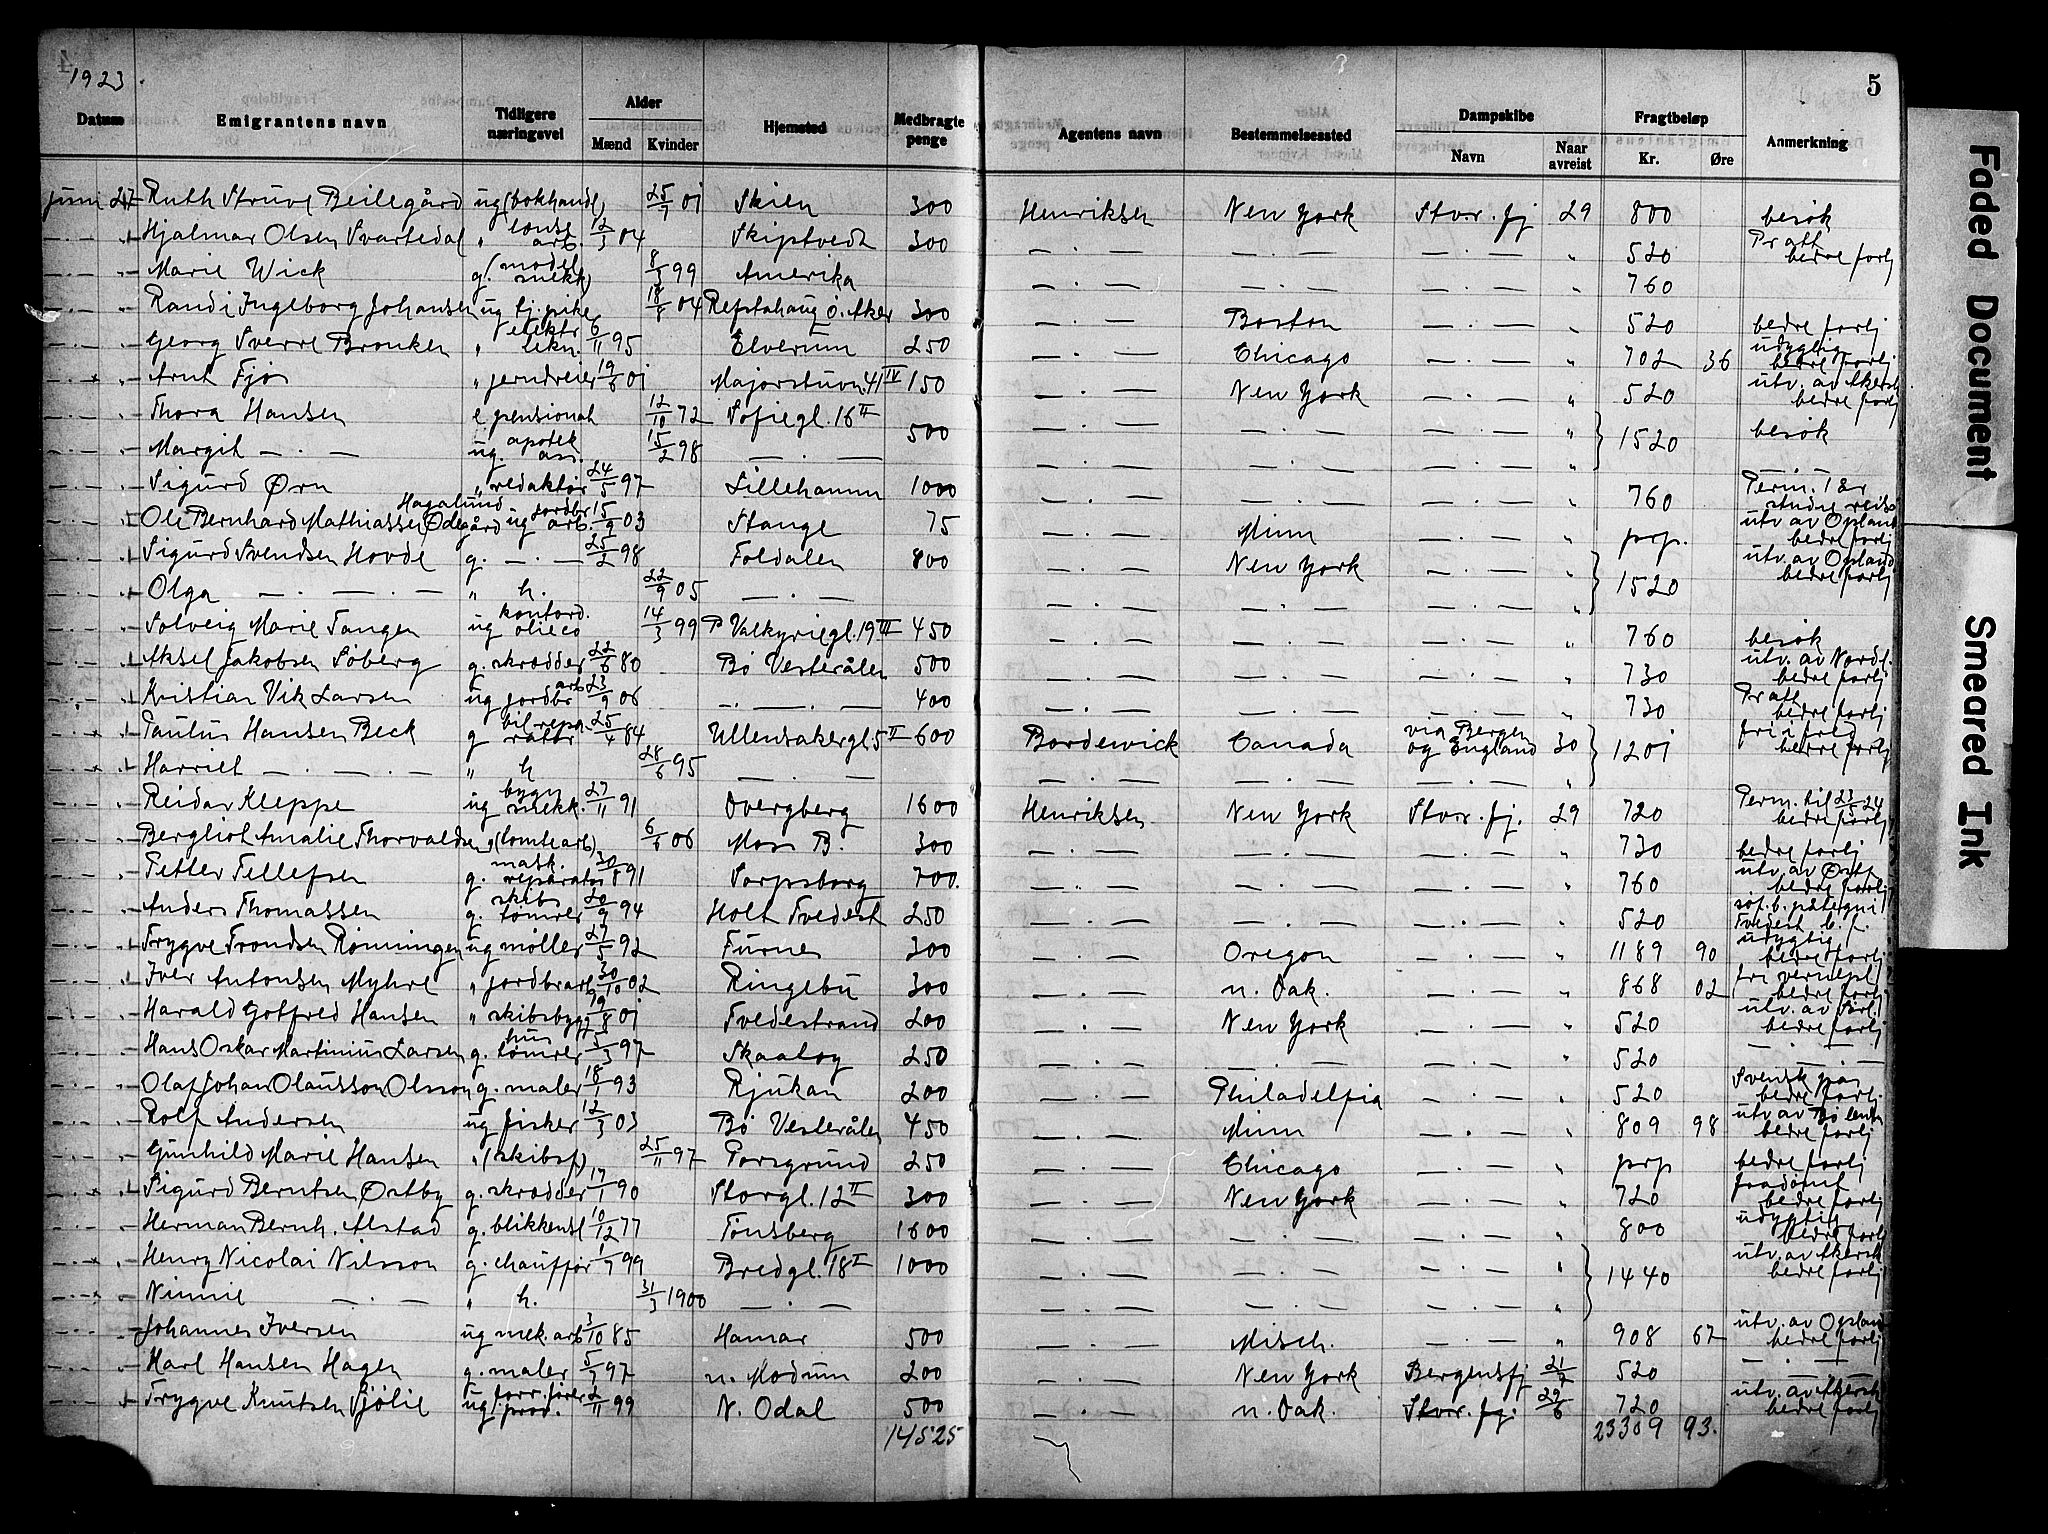 1923.
5
Datum Emigrantens navn Tidligere næringsvei Alder Mænd Kvinder Hjemsted Medbragte penge Agentens navn Bestemmelsessted Dampskibe Navn Naar avreist Fragtbeløp Kr. Øre Anmerkning
Juni 27 Ruth Struve Beilegård ug (bokhandl) 25/7 01 Skien 300 Henriksen New York Stvr. fj 29 800 besøk
Hjalmar Olsen Svartedal " arb. 12/3 04 Skiptvedt 300 — . — — . — — . — " 520 bedre forhj
Marie Wick g. 99 Amerika — . — — . — — . — " 760
Randi Ingeborg Johansen ug tj. pike 04 Refstahaug Ø. Aker 300 — . — Boston — . — " 520 bedre forhj
Georg Sverre Bronken " elektr. 6/11 95 Elverum 250 — . — Chicago — . — " 702 36 udygtig bedre forhj
Arnt Fjøs " jerndreier 19/6 01 Majorstuvn 41 IV 150 — . — New York — . — " 520 utv. av Akersh bedre forhj
Thora Hansen e pensionat 12/10 72 Sofiegt. 16 II 500 — . — — . — — . — " 1520 besøk
Margit — . — ug. apotek ass. 15/2 98 — . — — . — — . — — . — " — . —
Sigurd Ørn " redaktør 24/5 97 Lillehamm 1000 — . — — . — — . — " 760 Perm. 1 år
Ole Bernhard Mathiassen Ødegård Hagalund ug jordbr arb. 15/9 03 Stange 75 — . — Minn — . — " prp. utv av Opland bedre forhj
Sigurd Svendsen Hovde g. — . — 25/2 98 Foldalen 800 — . — New York — . — " 1520 utv. av Opland bedre forhj
Olga — . — . — " h. 22/9 05 — . — — . — — . — — . — "
Solveig Marie Tangen ug 14/3 99 Valkyriegt. 19 III 450 — . — — . — — . — " 760 besøk
Aksel Jakobsen Søberg g. skrædder 22/6 80 Bø Vesterålen 500 — . — — . — — . — " 730 utv. av Nordl. bedre forhj
Kristian Vik Larsen ug jordbr arb 23/9 06 — . — 400 — . — — . — — . — " 730 bedre forhj
Paulus Hansen Beck g bilrepa ratør 25/4 84 Ullensakergt 5 II 600 Bordewick Canada via Bergen og England 30 1201 fri i fred bedre forhj
Harriet — . — . — " h 28/6 95 — . — — . — — . — — . — "
Reidar Kleppe ug bygn mekk. 27/11 91 Dvergberg 1600 Henriksen New York Stvr. fj. 29 720 Perm. til 23/5 24 bedre forhj
Bergliot Amalie Thorvaldsen " (tomtearb) 6/6 06 Moss B. 300 — . — — . — — . — " 730 bedre forhj
Petter Tellefsen g. mask. reparatør 30/8 91 Sarpsborg 700. — . — — . — — . — " 760 utv. av Østf. bedre forhj
Anders Thomassen g. skibs tømrer 20/9 94 Holt Tvedest 250 — . — — . — — . — " 520 Tvedest
Trygve Trondsen Rønningen ug møller 27/5 92 Furnes 300 — . — Oregon — . — " 1189 90 udygtig bedre forhj
Iver Antonsen Myhre " jordbrarb 30/10 02 Ringebu 300 — . — n. Dak. — . — " 868 02 fri vernepl bedre forhj
Harald Gotfred Hansen " skibsbygg 19/8 01 Tvedestrand 200 — . — New York — . — " 520 bedre forhj
Hans Oskar Martinius Larsen g. hus tømrer 5/3 97 Skaatøy 250 — . — — . — — . — " 520 — . —
Olaf Johan Olausson Olsson g. maler 18/1 93 Rjukan 200 — . — Philadelfia — . — " 520 Svensk bedre forhj.
Rolf Andersen ug fisker 12/3 03 Bø Vesterålen 450 — . — Minn — . — " 809 98 utv av Bø lensm bedre forhj
Gunhild Marie Hansen " (skibsf) 25/11 97 Porsgrund 250 — . — Chicago — . — " prp bedre forhj
Sigurd Berntsen Østby g. skrædder 17/1 90 Storgt. 12 II 300 — . — New York — . — " 720 bedre forhj
Herman Bernh. Alstad g. blikkensl 10/12 77 Tønsberg 1600 — . — — . — — . — " 800 udygtig bedre forhj
Henry Nicolai Nilsson g. chauffør 1/7 99 Bredgt. 18 I 1000 — . — — . — — . — " 1440 utv. av Akersh bedre forhj
Ninnie — . — " h. 31/3 1900 — . — — . — — . — — . — "
Johannes Iversen ug mek. arb 3/10 85 Hamar 500 — . — Misch. — . — " 908 67 utv. av Opland bedre forhj
Karl Hansen Hagen g. maler 5/7 97 n. Modum 200 — . — New York Bergensfj 21/7 520 — . —
Trygve Knutsen Sjølie ug prod. 2/11 99 N. Odal 500 — . — n. Dak. Stvr. fj. 29/6 720 utv. av Akersh bedre forhj
14525 23309 93.
Faded Document
Smeared Ink